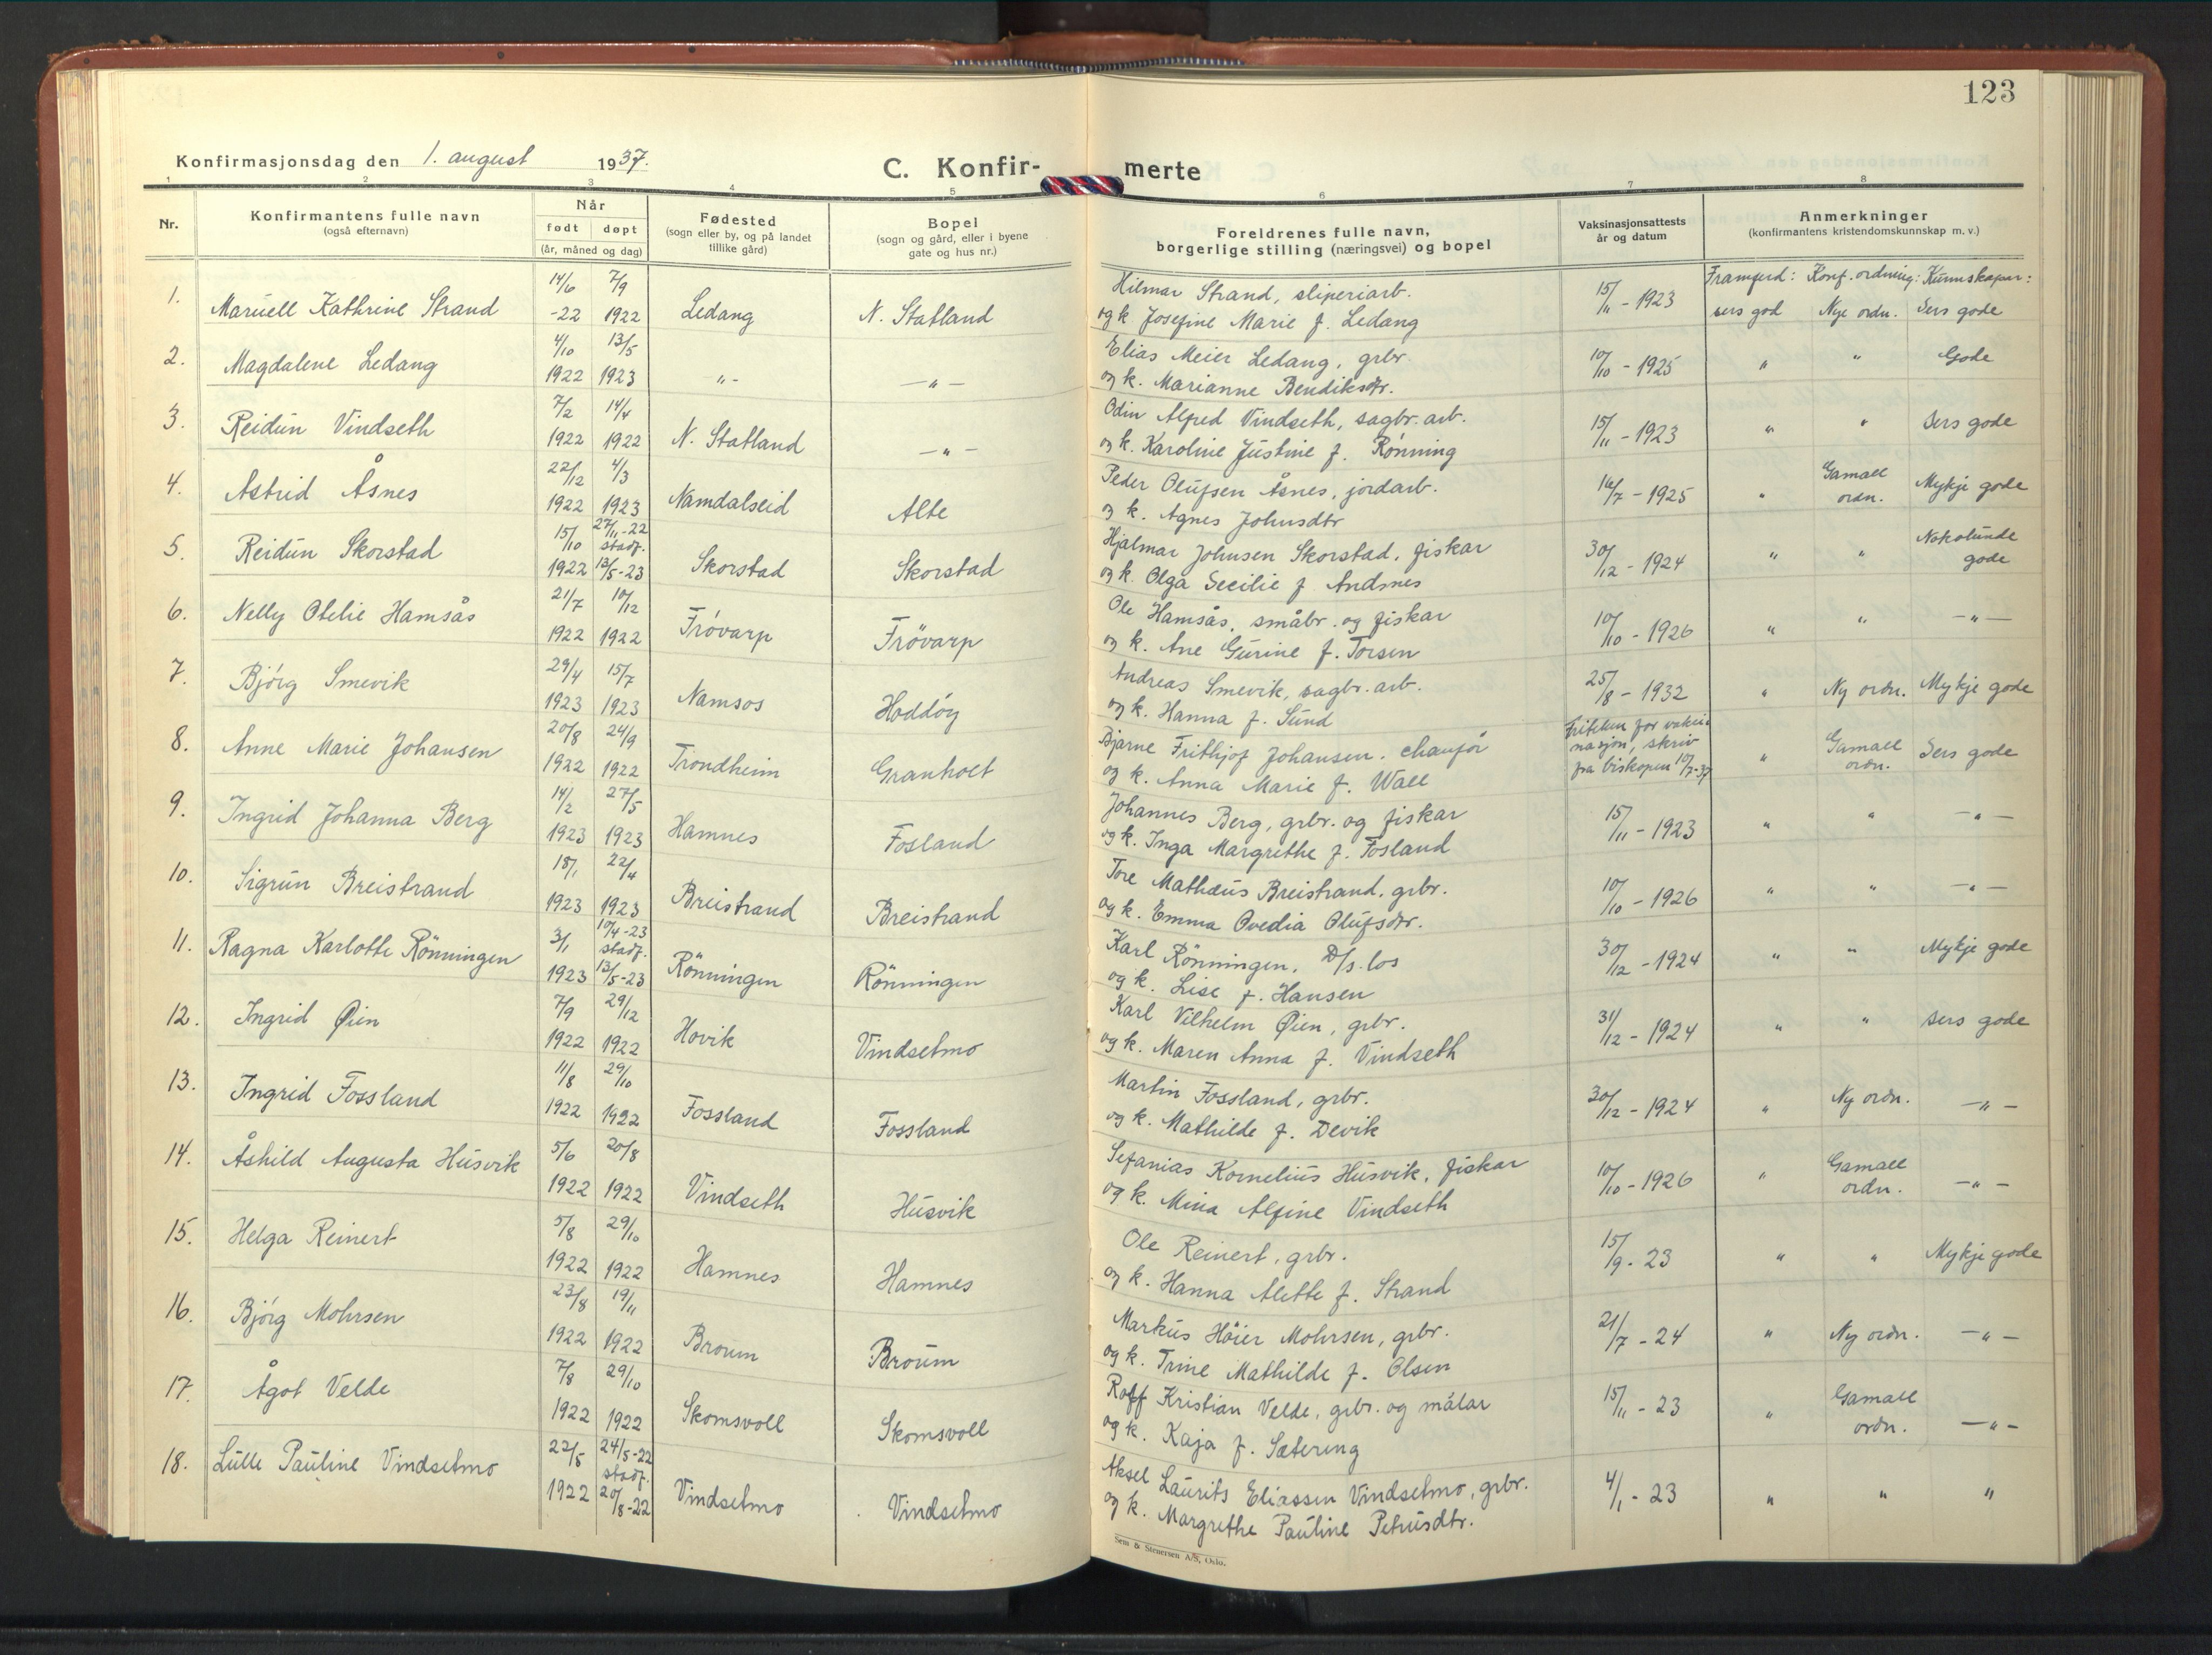 123
Konfirmasjonsdag den 1. august 1937.
C. Konfir- merte
1 2 3 4 5 6 7 8
Nr.
Konfirmantens fulle navn
(også efternavn)
Når
født døpt
(år, måned og dag)
Fødested
(sogn eller by, og på landet
tillike gård)
Bopel
(sogn og gård, eller i byene
gate og hus nr.)
Foreldrenes fulle navn,
borgerlige stilling (næringsvei) og bopel
Vaksinasjonsattests
år og datum
Anmerkninger
(konfirmantens kristendomskunnskap m. v.)
Framferd: Konf. ordning: Kunnskapar:
1. 14/6 7/9 Hilmar Strand, sliperiarb. 15/11 - 1923
Maruell Kathrine Strand -22 1922 Ledang N. Statland og k Josefine Marie f. Ledang sers god Nye ordn. Sers gode
2. 4/10 13/5 Elias Meier Ledang, grbr. 10/10 - 1925 " " Gode
Magdalene Ledang 1922 1923 " - — " — og k. Marianne Bendiksdtr.
3. 7/2 14/4 Odin Alfred Vindseth, sagbr. arb. 15/11 - 1923 " " Sers gode
Reidun Vindseth 1922 1922 N. Statland — " — og k. Karoline Justine f. Rønning
4. 22/12 4/3 Peder Olufsen Åsnes, jordarb. 14/7 - 1925 " Gamall ordn. Mykje gode
Astrid Åsnes 1922 1923 Namdalseid Alte og k. Agnes Johnsdtr
5. 15/10 27/11-22 stadf. Hjalmar Johnsen Skorstad, fiskar 30/12 - 1924 " " Nokolunde gode
Reidun Skorstad 1922 13/5-23 Skorstad Skorstad og k. Olga Secilie f Andsnes
6. 21/7 10/12 Ole Hamsås, småbr. og fiskar 10/10 - 1926 " " — " —
Nelly Otelie Hamsås 1922 1922 Frövarp Frövarp og k. Ane Gurine f. Torsen
7. 29/4 15/7 Andreas Smevik, sagbr. arb. 25/8 - 1932 " Ny ordn. Mykje gode
Bjørg Smevik 1923 1923 Namsos Hoddøy og k. Hanna f. Sund
8. 20/8 24/9 Bjarne Frithjof Johansen, chauför Friteken for vaksi-
nasjon, skriv
fra biskopen 10/7-37 " Gamall ordn. Sers gode
Anne Marie Johansen 1922 1922 Trondheim Granholt og k. Anna Marie f. Wall
9. 14/2 27/5 Johannes Berg, grbr. og fiskar 15/11 - 1923 " " — " —
Ingrid Johanna Berg 1923 1923 Hamnes Fosland og k. Inga Margrethe f. Fosland
10. 18/1 22/4 Tore Mathæus Breistrand, grbr. 10/10 - 1926 " " — " —
Sigrun Breistrand 1923 1923 Breistrand Breistrand og k. Emma Ovedia Olufsdtr.
11. 3/1 10/4-23 stadf. Karl Rönningen, D/s. los 30/12 - 1924 " " Mykje gode
Ragna Karlotte Rönningen 1923 13/5-23 Rönningen Rönningen og k. Lise f. Hansen
12. 7/9 29/12 Karl Vilhelm Øien, grbr. 31/12 - 1924 " " sers gode
Ingrid Øien 1922 1922 Hovik Vindsetmo og k. Maren Anna f. Vindseth
13. 11/8 29/10 Martin Fossland, grbr. 30/12 - 1924 " Ny ordn. — " —
Ingrid Fossland 1922 1922 Fossland Fossland og k. Mathilde f. Devik
14. 5/6 20/8 Sefanias Kornelius Husvik, fiskar 10/10 - 1926 " Gamall ordn. — " —
Åshild Augusta Husvik 1922 1922 Vindseth Husvik og k. Mina Alfine Vindseth
15. 5/8 29/10 Ole Reinert, grbr. 15/9 - 23 " " Mykje gode
Helga Reinert 1922 1922 Hamnes Hamnes og k. Hanna Alette f. Strand
16. 23/8 19/11 Markus Höier Mohrsen, grbr. 21/7 - 24 " Ny ordn. — " —
Bjørg Mohrsen 1922 1922 Broum Broum og k. Trine Mathilde f. Olsen
17. 7/8 29/10 Rolf Kristian Velde, grbr. og målar 15/11 - 23 " Gamall ordn. — " —
Ågot Velde 1922 1922 Skomsvoll Skomsvoll og k. Kaja f. Sætering
18. 22/5 24/5-22 stadf. Aksel Laurits Eliassen Vindsetmo, grbr. 4/1 - 23 " " "
Lulle Pauline Vindsetmo 1922 20/8-22 Vindsetmo Vindsetmo og k. Margrethe Pauline Petrusdtr.
Sem & Stenersen A/S, Oslo.